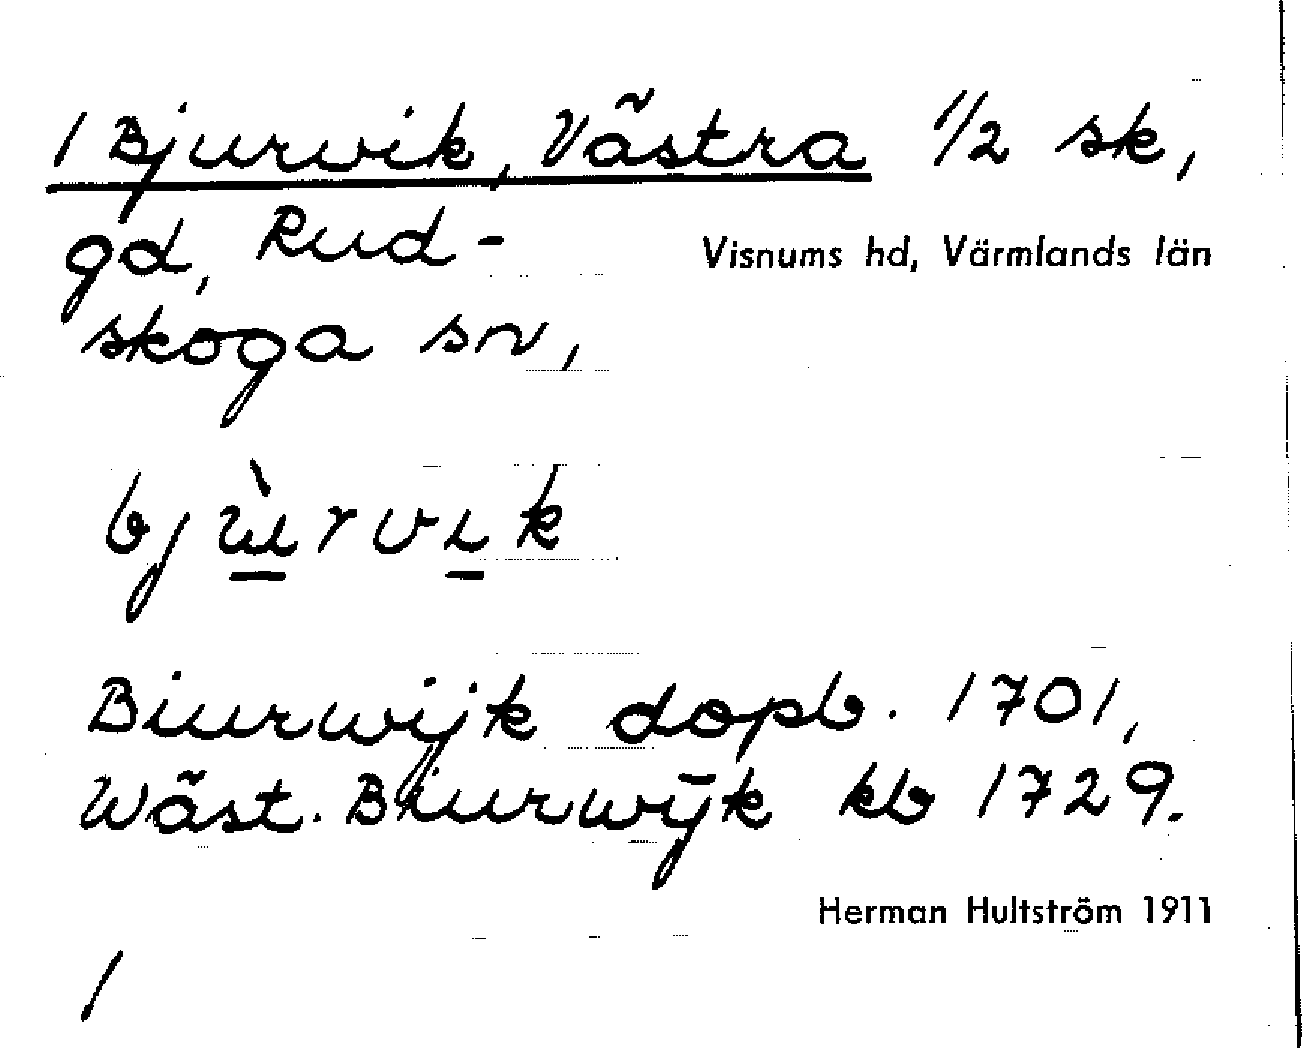 1 Bjurvik, Västra 1/2 sk,
gd, Rud-
Visnums hd, Värmlands län
skoga sn,
Biurwijk dopb. 1701,
Wäst. Biurwijk kb 1729.
Herman Hultström 1911
1